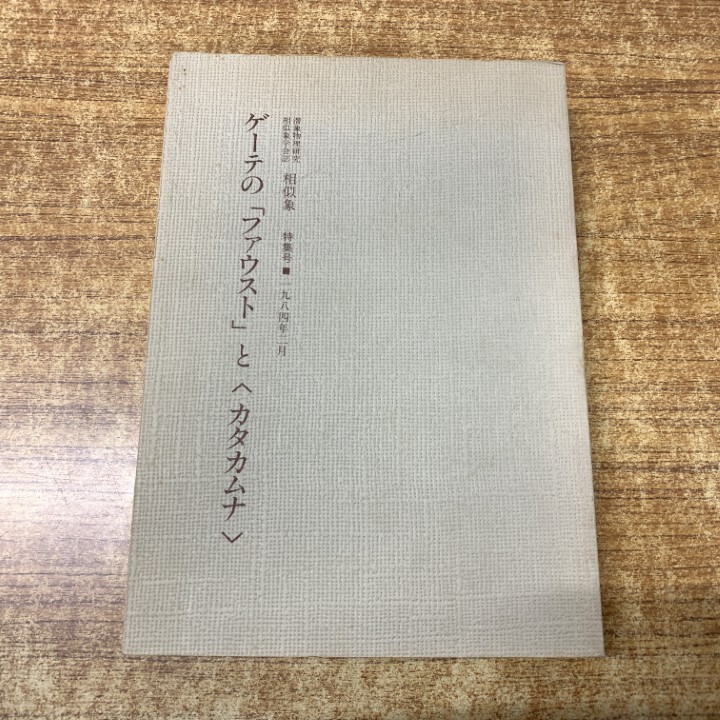 潜象物理研究
相似象学会誌
相似象 特集号■一九八四年二月
ゲーテの「ファウスト」と〈カタカムナ〉